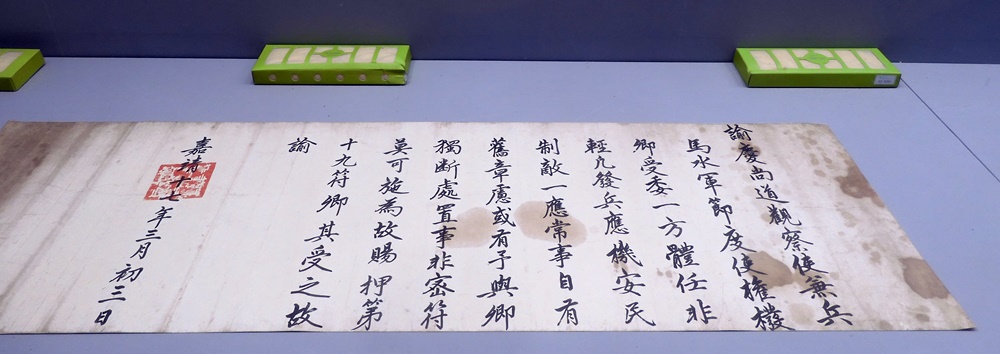 諭慶尚道觀察使兼兵
馬水軍節度使權橃
卿受委一方體任非
輕凡發兵應機安民
制敵一應常事自有
舊章慮或有予與卿
獨斷處置事非密符
莫可施為故賜 押第
十九符卿其受之故
諭
嘉靖十七年三月初三日